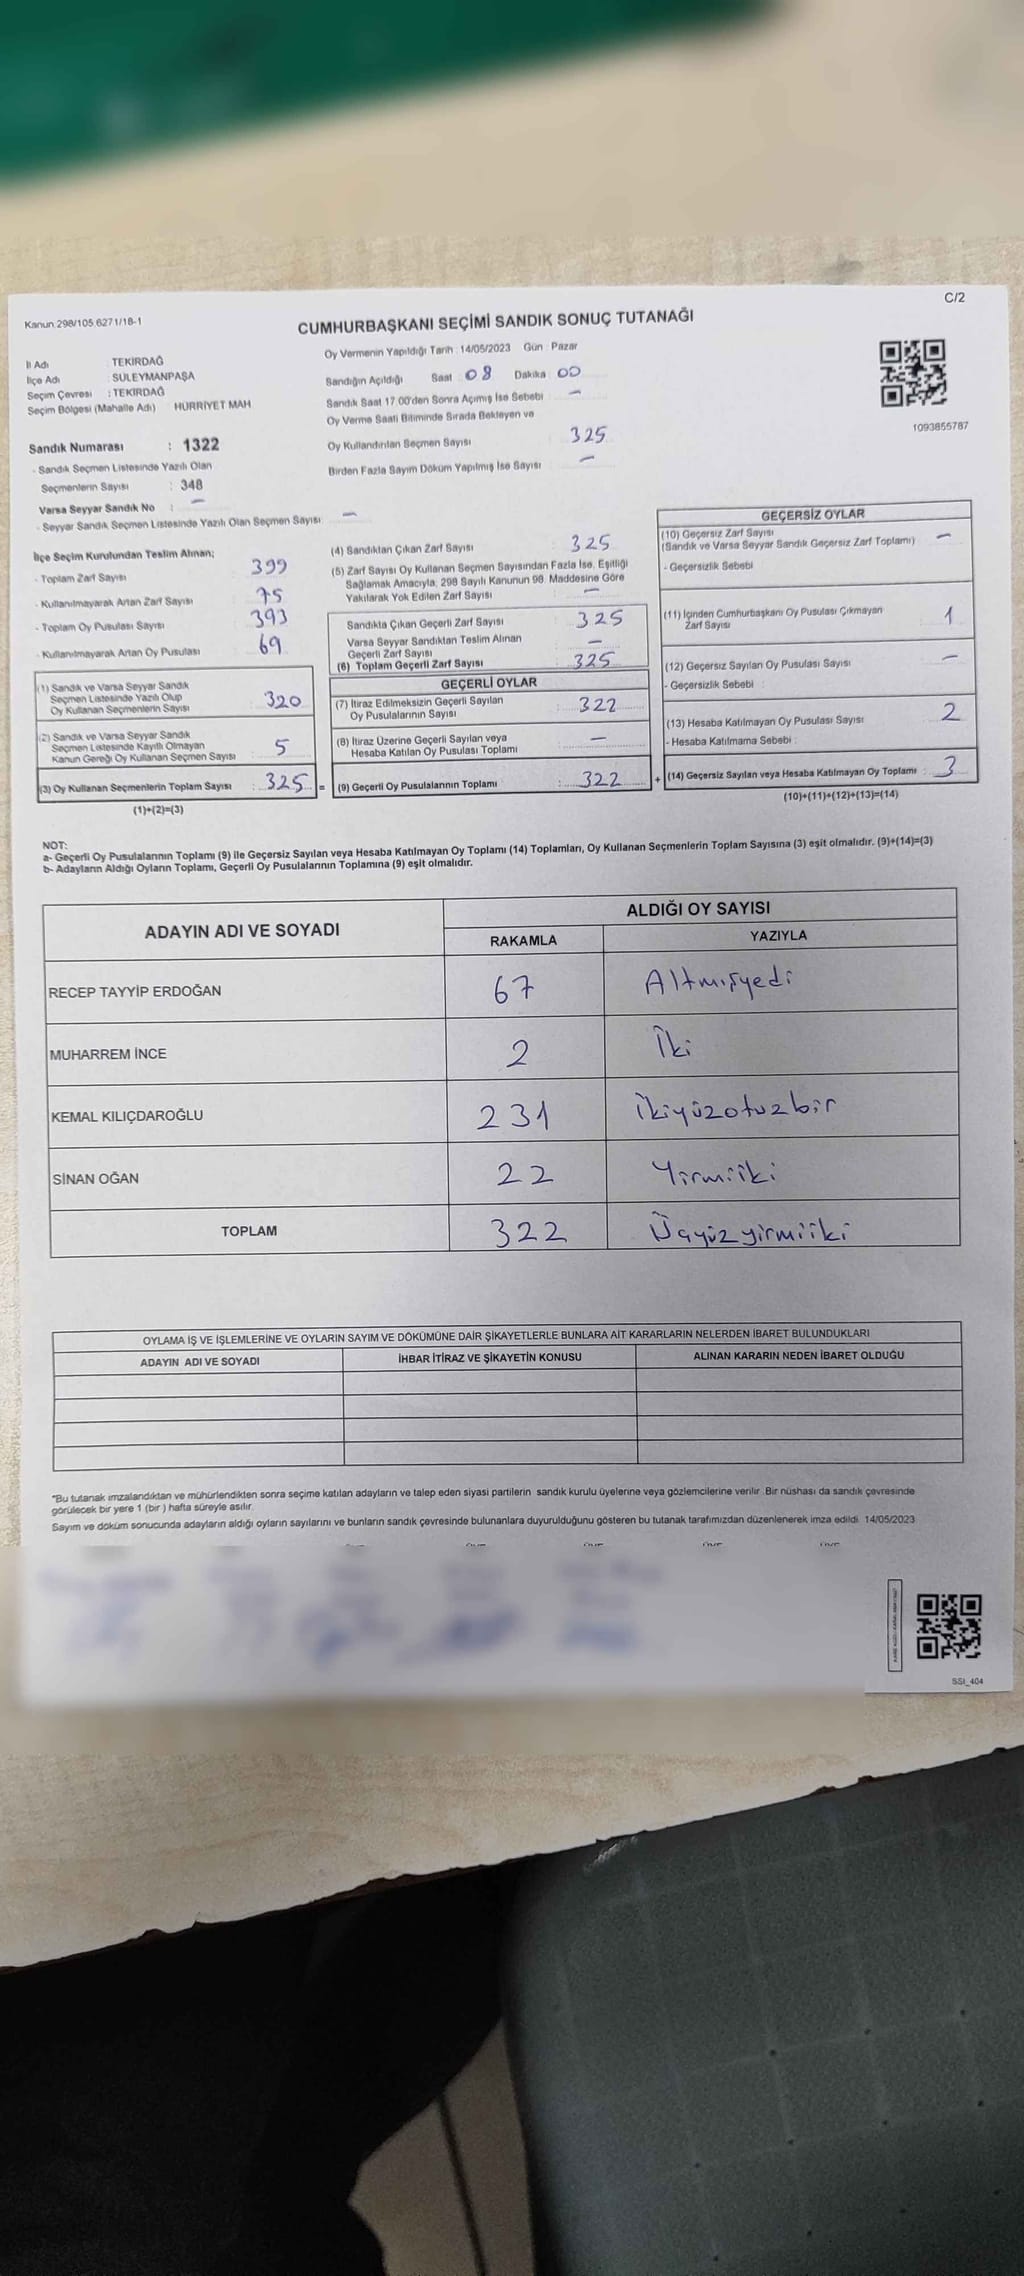 C/2
Kanun 298/105 6271/18-1
CUMHURBAŞKANI SEÇİMİ SANDIK SONUÇ TUTANAĞI
İl Adı : TEKİRDAĞ
İlçe Adı : SÜLEYMANPAŞA
Seçim Çevresi : TEKİRDAĞ
Seçim Bölgesi (Mahalle Adı) HÜRRİYET MAH
Sandık Numarası : 1322
- Sandık Seçmen Listesinde Yazılı Olan
Seçmenlerin Sayısı : 348
Varsa Seyyar Sandık No : –
- Seyyar Sandık Seçmen Listesinde Yazılı Olan Seçmen Sayısı: –
Oy Vermenin Yapıldığı Tarih : 14/05/2023 Gün : Pazar
Sandığın Açıldığı Saat : 08 Dakika : 00
Sandık Saat 17.00'den Sonra Açımış İse Sebebi : –
Oy Verme Saati Bitiminde Sırada Bekleyen ve
Oy Kullandırılan Seçmen Sayısı : 325
Birden Fazla Sayım Döküm Yapılmış İse Sayısı : –
1093855787
İlçe Seçim Kurulundan Teslim Alınan;
- Toplam Zarf Sayısı : 399
- Kullanılmayarak Artan Zarf Sayısı : 75
- Toplam Oy Pusulası Sayısı : 393
- Kullanılmayarak Artan Oy Pusulası : 69
(1) Sandık ve Varsa Seyyar Sandık
Seçmen Listesinde Yazılı Olup
Oy Kullanan Seçmenlerin Sayısı : 320
(2) Sandık ve Varsa Seyyar Sandık
Seçmen Listesinde Kayıtlı Olmayan
Kanun Gereği Oy Kullanan Seçmen Sayısı : 5
(3) Oy Kullanan Seçmenlerin Toplam Sayısı : 325 =
(1)+(2)=(3)
(4) Sandıktan Çıkan Zarf Sayısı : 325
(5) Zarf Sayısı Oy Kullanan Seçmen Sayısından Fazla İse, Eşitliği
Sağlamak Amacıyla, 298 Sayılı Kanunun 98. Maddesine Göre
Yakılarak Yok Edilen Zarf Sayısı : –
Sandıkta Çıkan Geçerli Zarf Sayısı : 325
Varsa Seyyar Sandıktan Teslim Alınan
Geçerli Zarf Sayısı : –
(6) Toplam Geçerli Zarf Sayısı : 325
GEÇERLİ OYLAR
(7) İtiraz Edilmeksizin Geçerli Sayılan
Oy Pusulalarının Sayısı : 322
(8) İtiraz Üzerine Geçerli Sayılan veya
Hesaba Katılan Oy Pusulası Toplamı : –
(9) Geçerli Oy Pusulalarının Toplamı : 322 +
GEÇERSİZ OYLAR
(10) Geçersiz Zarf Sayısı –
(Sandık ve Varsa Seyyar Sandık Geçersiz Zarf Toplamı)
- Geçersizlik Sebebi
(11) İçinden Cumhurbaşkanı Oy Pusulası Çıkmayan
Zarf Sayısı 1
(12) Geçersiz Sayılan Oy Pusulası Sayısı –
- Geçersizlik Sebebi :
(13) Hesaba Katılmayan Oy Pusulası Sayısı 2
- Hesaba Katılmama Sebebi :
(14) Geçersiz Sayılan veya Hesaba Katılmayan Oy Toplamı : 3
(10)+(11)+(12)+(13)=(14)
NOT:
a- Geçerli Oy Pusulalarının Toplamı (9) ile Geçersiz Sayılan veya Hesaba Katılmayan Oy Toplamı (14) Toplamları, Oy Kullanan Seçmenlerin Toplam Sayısına (3) eşit olmalıdır. (9)+(14)=(3)
b- Adayların Aldığı Oyların Toplamı, Geçerli Oy Pusulalarının Toplamına (9) eşit olmalıdır.
ADAYIN ADI VE SOYADI ALDIĞI OY SAYISI
RAKAMLA YAZIYLA
RECEP TAYYİP ERDOĞAN 67 Altmışyedi
MUHARREM İNCE 2 İki
KEMAL KILIÇDAROĞLU 231 İkiyüzotuzbir
SİNAN OĞAN 22 Yirmiiki
TOPLAM 322 Üçyüzyirmiiki
OYLAMA İŞ VE İŞLEMLERİNE VE OYLARIN SAYIM VE DÖKÜMÜNE DAİR ŞİKAYETLERLE BUNLARA AİT KARARLARIN NELERDEN İBARET BULUNDUKLARI
ADAYIN ADI VE SOYADI İHBAR İTİRAZ VE ŞİKAYETİN KONUSU ALINAN KARARIN NEDEN İBARET OLDUĞU
"Bu tutanak imzalandıktan ve mühürlendikten sonra seçime katılan adayların ve talep eden siyasi partilerin sandık kurulu üyelerine veya gözlemcilerine verilir. Bir nüshası da sandık çevresinde
görülecek bir yere 1 (bir) hafta süreyle asılır.
Sayım ve döküm sonucunda adayların aldığı oyların sayılarını ve bunların sandık çevresinde bulunanlara duyurulduğunu gösteren bu tutanak tarafımızdan düzenlenerek imza edildi. 14/05/2023
SSI_404